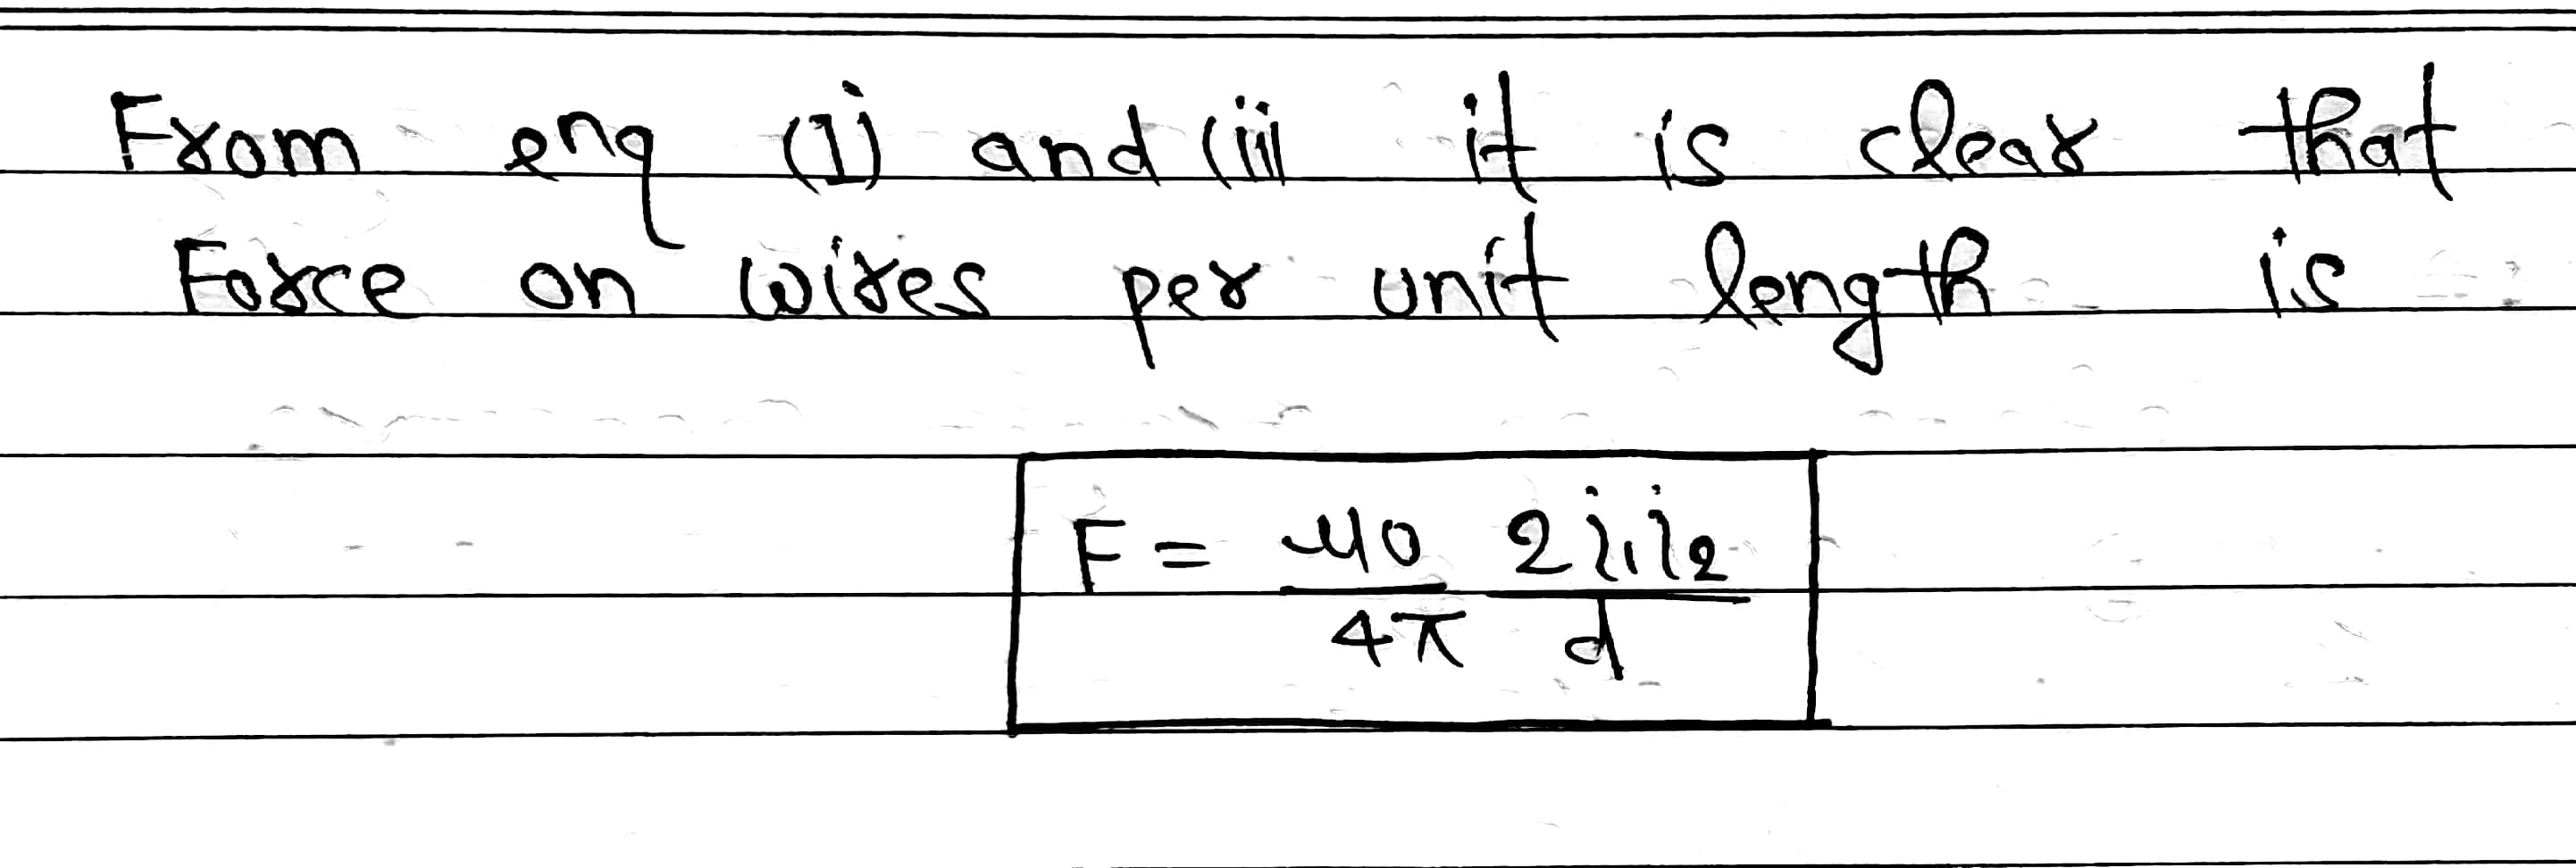 From enq (I) and (ii) it is clear that
Force on wires per unit length is
F = μ0/4π 2i₁i₂/d